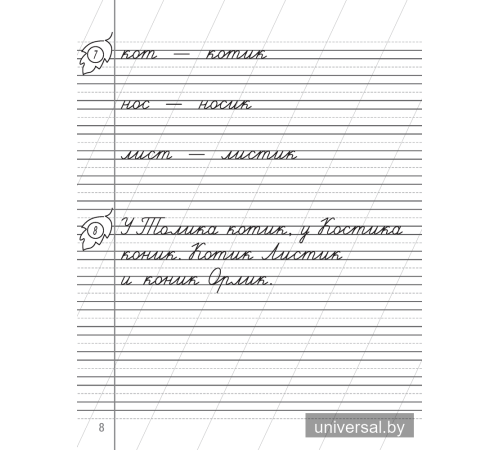 7 кот — котик
нос — носик
лист — листик
8 У Толика котик, у Костика
коник. Котик Листик
и коник Орлик.
8
universal.by